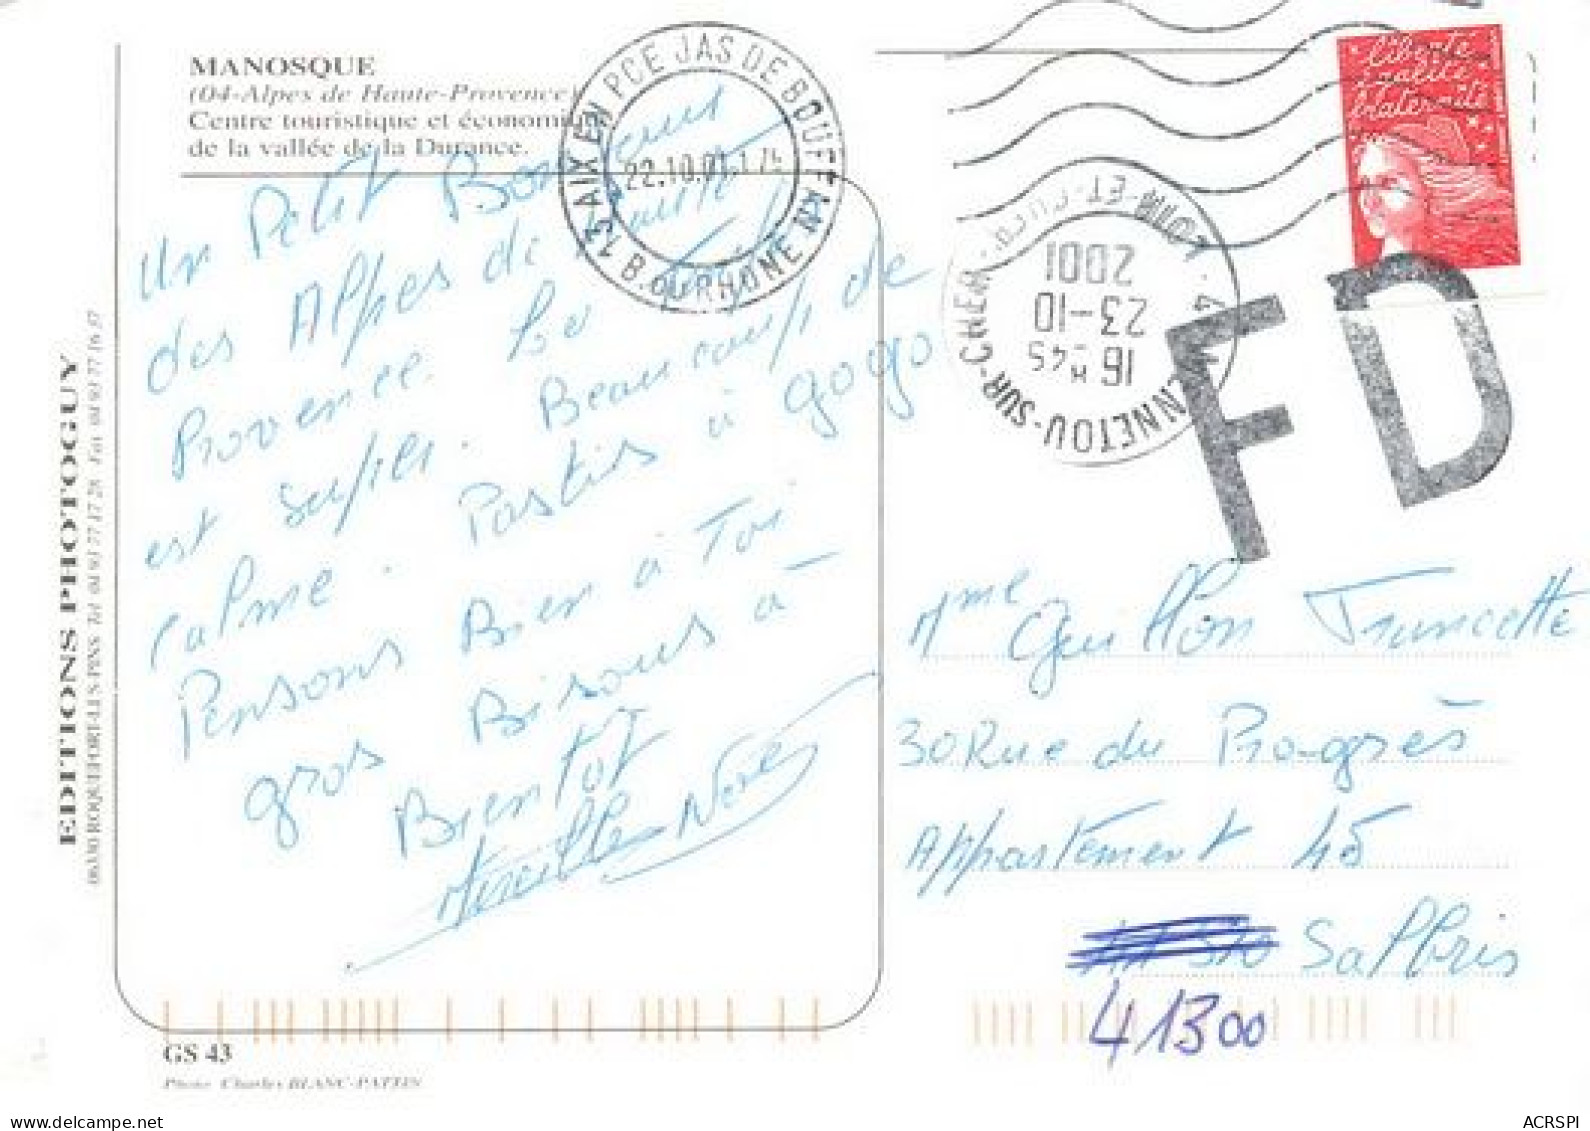 MANOSQUE
(04-Alpes de Haute-Provence)
Centre touristique et économique
de la vallée de la Durance.
Un Petit Bonjour
des Alpes de Haute
Provence. Le
est super. Beaucoup de
calme. Pastis à gogo
Pensons Bien à Toi
gros Bisous à
Bientôt
EDITIONS PHOTOGUY
06330 ROQUEFORT-LES-PINS Tél 04 93 77 17 28 Fax 04 93 77 16 37
GS 43
Photo Charles BLANC-PATTIN
13 AIX EN PCE JAS DE BOUFFAN
22.10.01
B. DU RHONE
MENNETOU-SUR-CHER
LOIR-ET-CHER
16 H 45
23-10
2001
Liberté
égalité
fraternité
FD
Mme Guillon
30 Rue du Progrès
Appartement 45
Salbris
41300
delcampe.net
ACRSPI